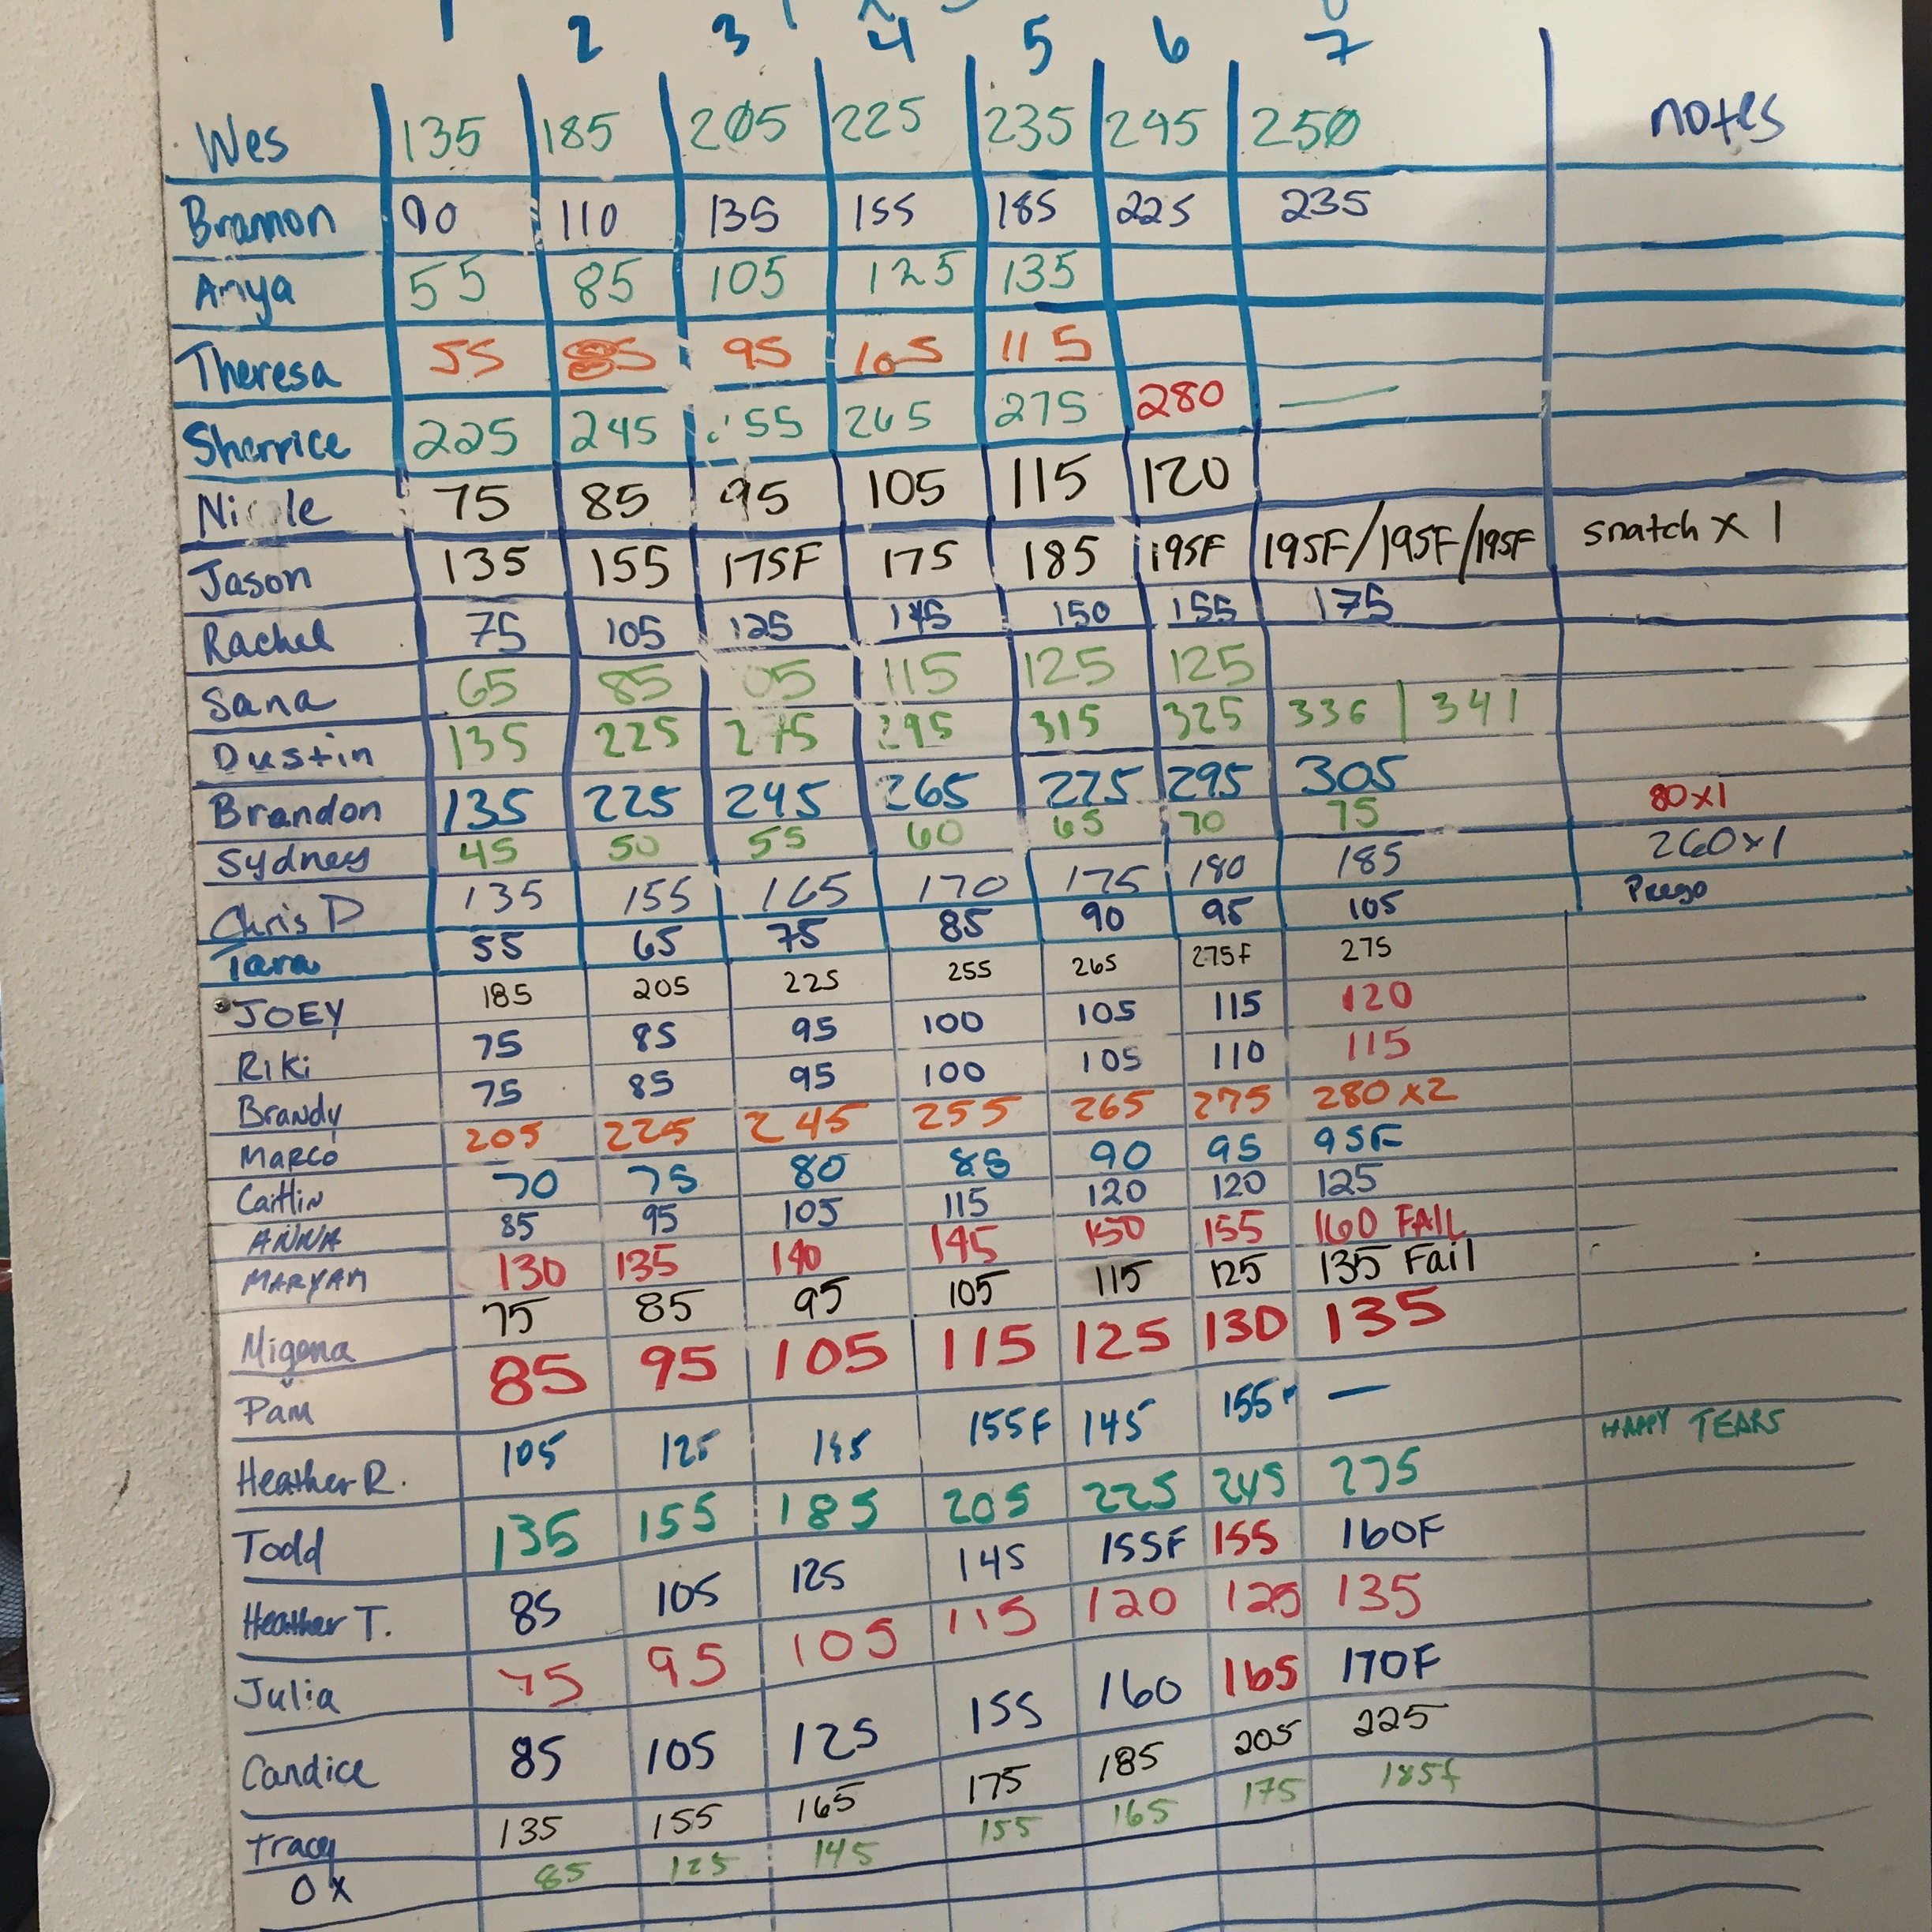 1 2 3 4 5 6 7
Wes 135 185 205 225 235 245 250 notes
Brannon 90 110 135 155 185 225 235
Anya 55 85 105 125 135
Theresa 55 85 95 105 115
Sherrice 225 245 55 265 275 280 —
Ni le 75 85 95 105 115 120
Jason 135 155 175F 175 185 195F 195F/195F/195F snatch x 1
Rachel 75 105 125 145 150 155 175
Sana 65 85 05 115 125 125
Dustin 135 225 275 295 315 325 336 | 341
Brandon 135 225 245 265 275 295 305
Sydney 45 50 55 60 65 70 75 80x1
Chris D 135 155 165 170 175 180 185 260x1
Tara 55 65 75 85 90 95 105 Prego
JOEY 185 205 225 255 265 275F 275
Riki 75 85 95 100 105 115 120
Brandy 75 85 95 100 105 110 115
MARCO 205 225 245 255 265 275 280 x2
Caitlin 70 75 80 85 90 95 95F
ANNA 85 95 105 115 120 120 125
MARYAM 130 135 140 145 150 155 160 FAIL
Migena 75 85 95 105 115 125 135 Fail
Pam 85 95 105 115 125 130 135
Heather R. 105 125 145 155F 145 155F —
Todd 135 155 185 205 225 245 275 HAPPY TEARS
Heather T. 85 105 125 145 155F 155 160F
Julia 75 95 105 115 120 125 135
Candice 85 105 125 155 160 165 170F
Tracy 135 155 165 175 185 205 225
OX 85 125 145 155 165 175 185f